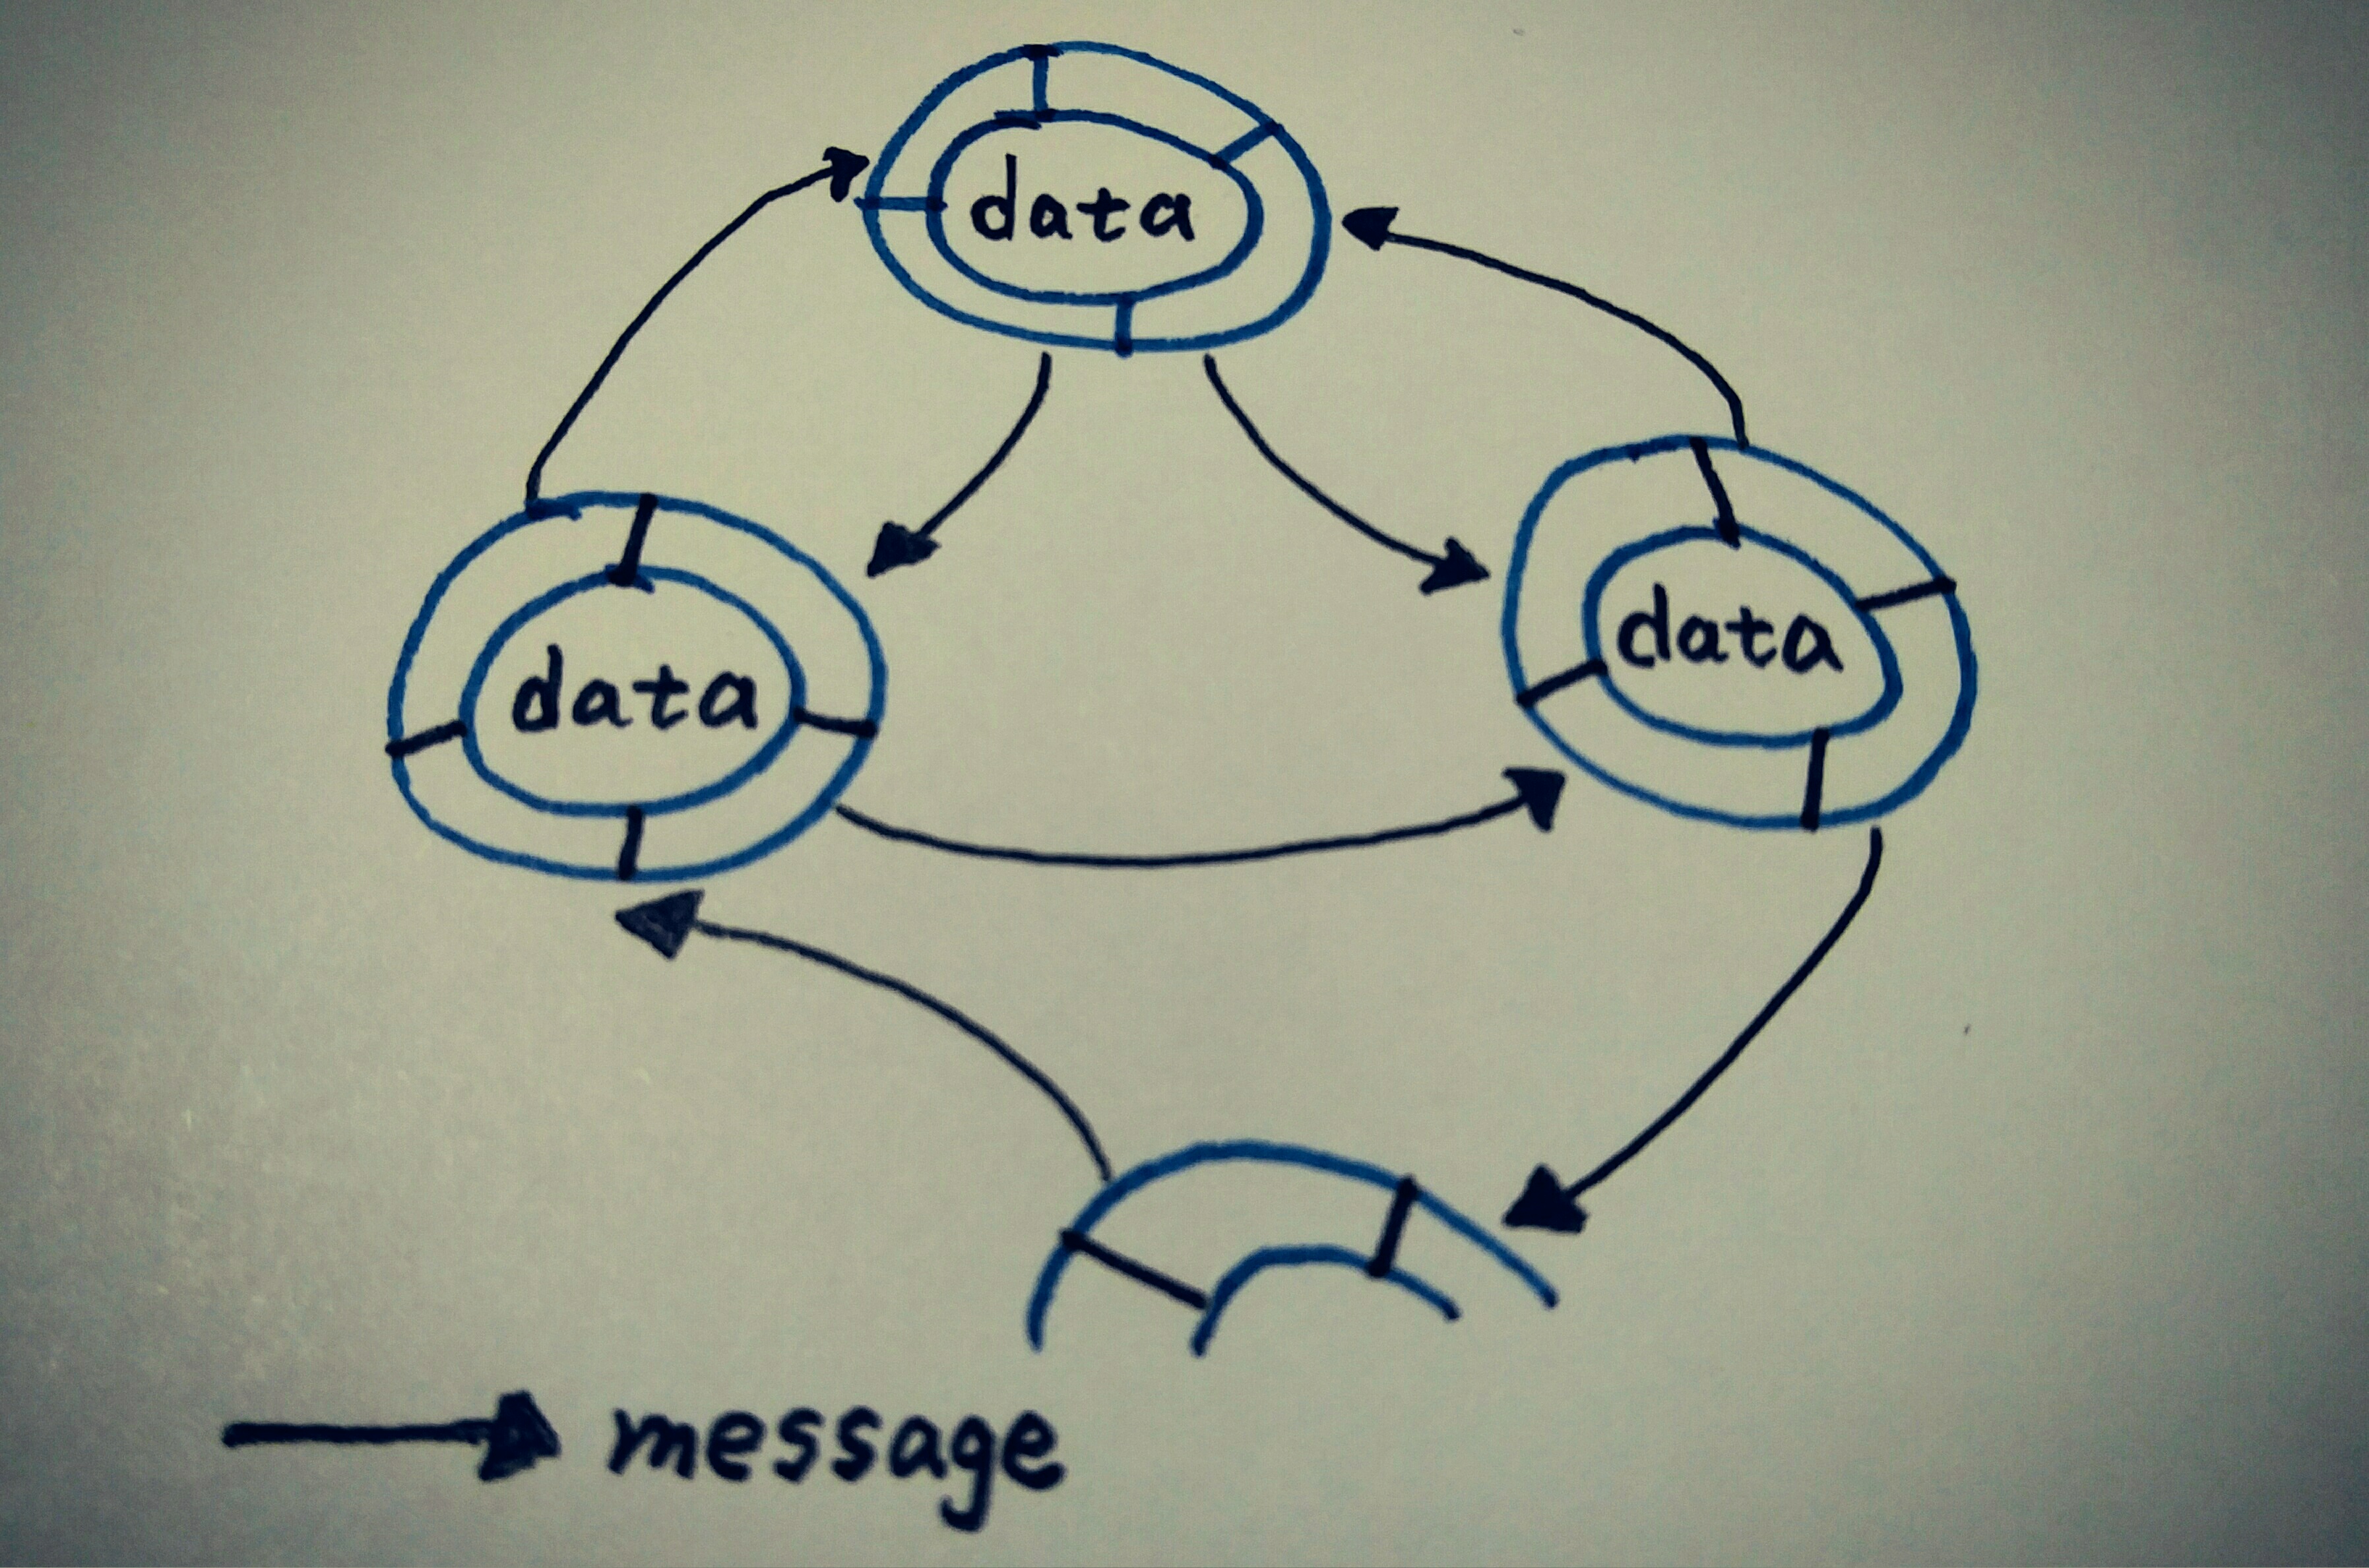 data
data
data
message